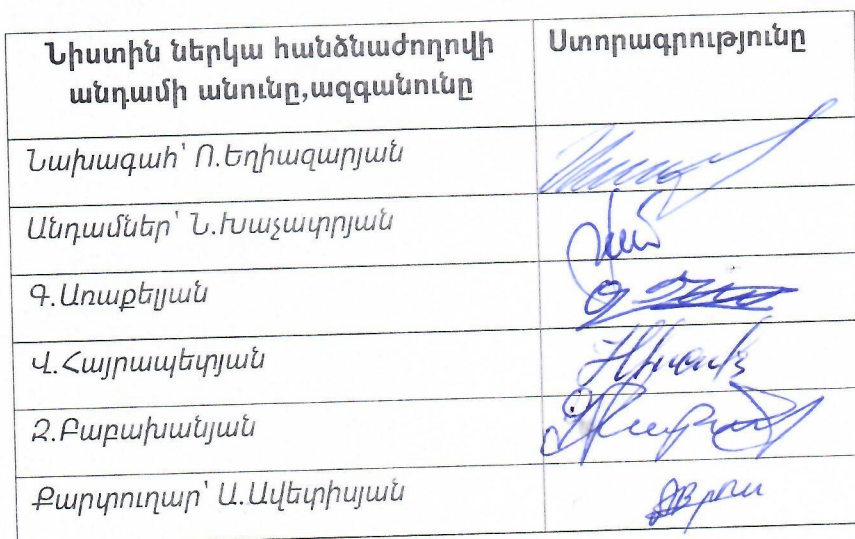 Նիստին ներկա հանձնաժողովի Ստորագրությունը
անդամի անունը,ազգանունը
Նախագահ՝ Ո.Եղիազարյան
Անդամներ՝ Ն.Խաչատրյան
Գ.Առաքելյան
Վ.Հայրապետյան
Զ.Բաբախանյան
Քարտուղար՝ Ա.Ավետիսյան